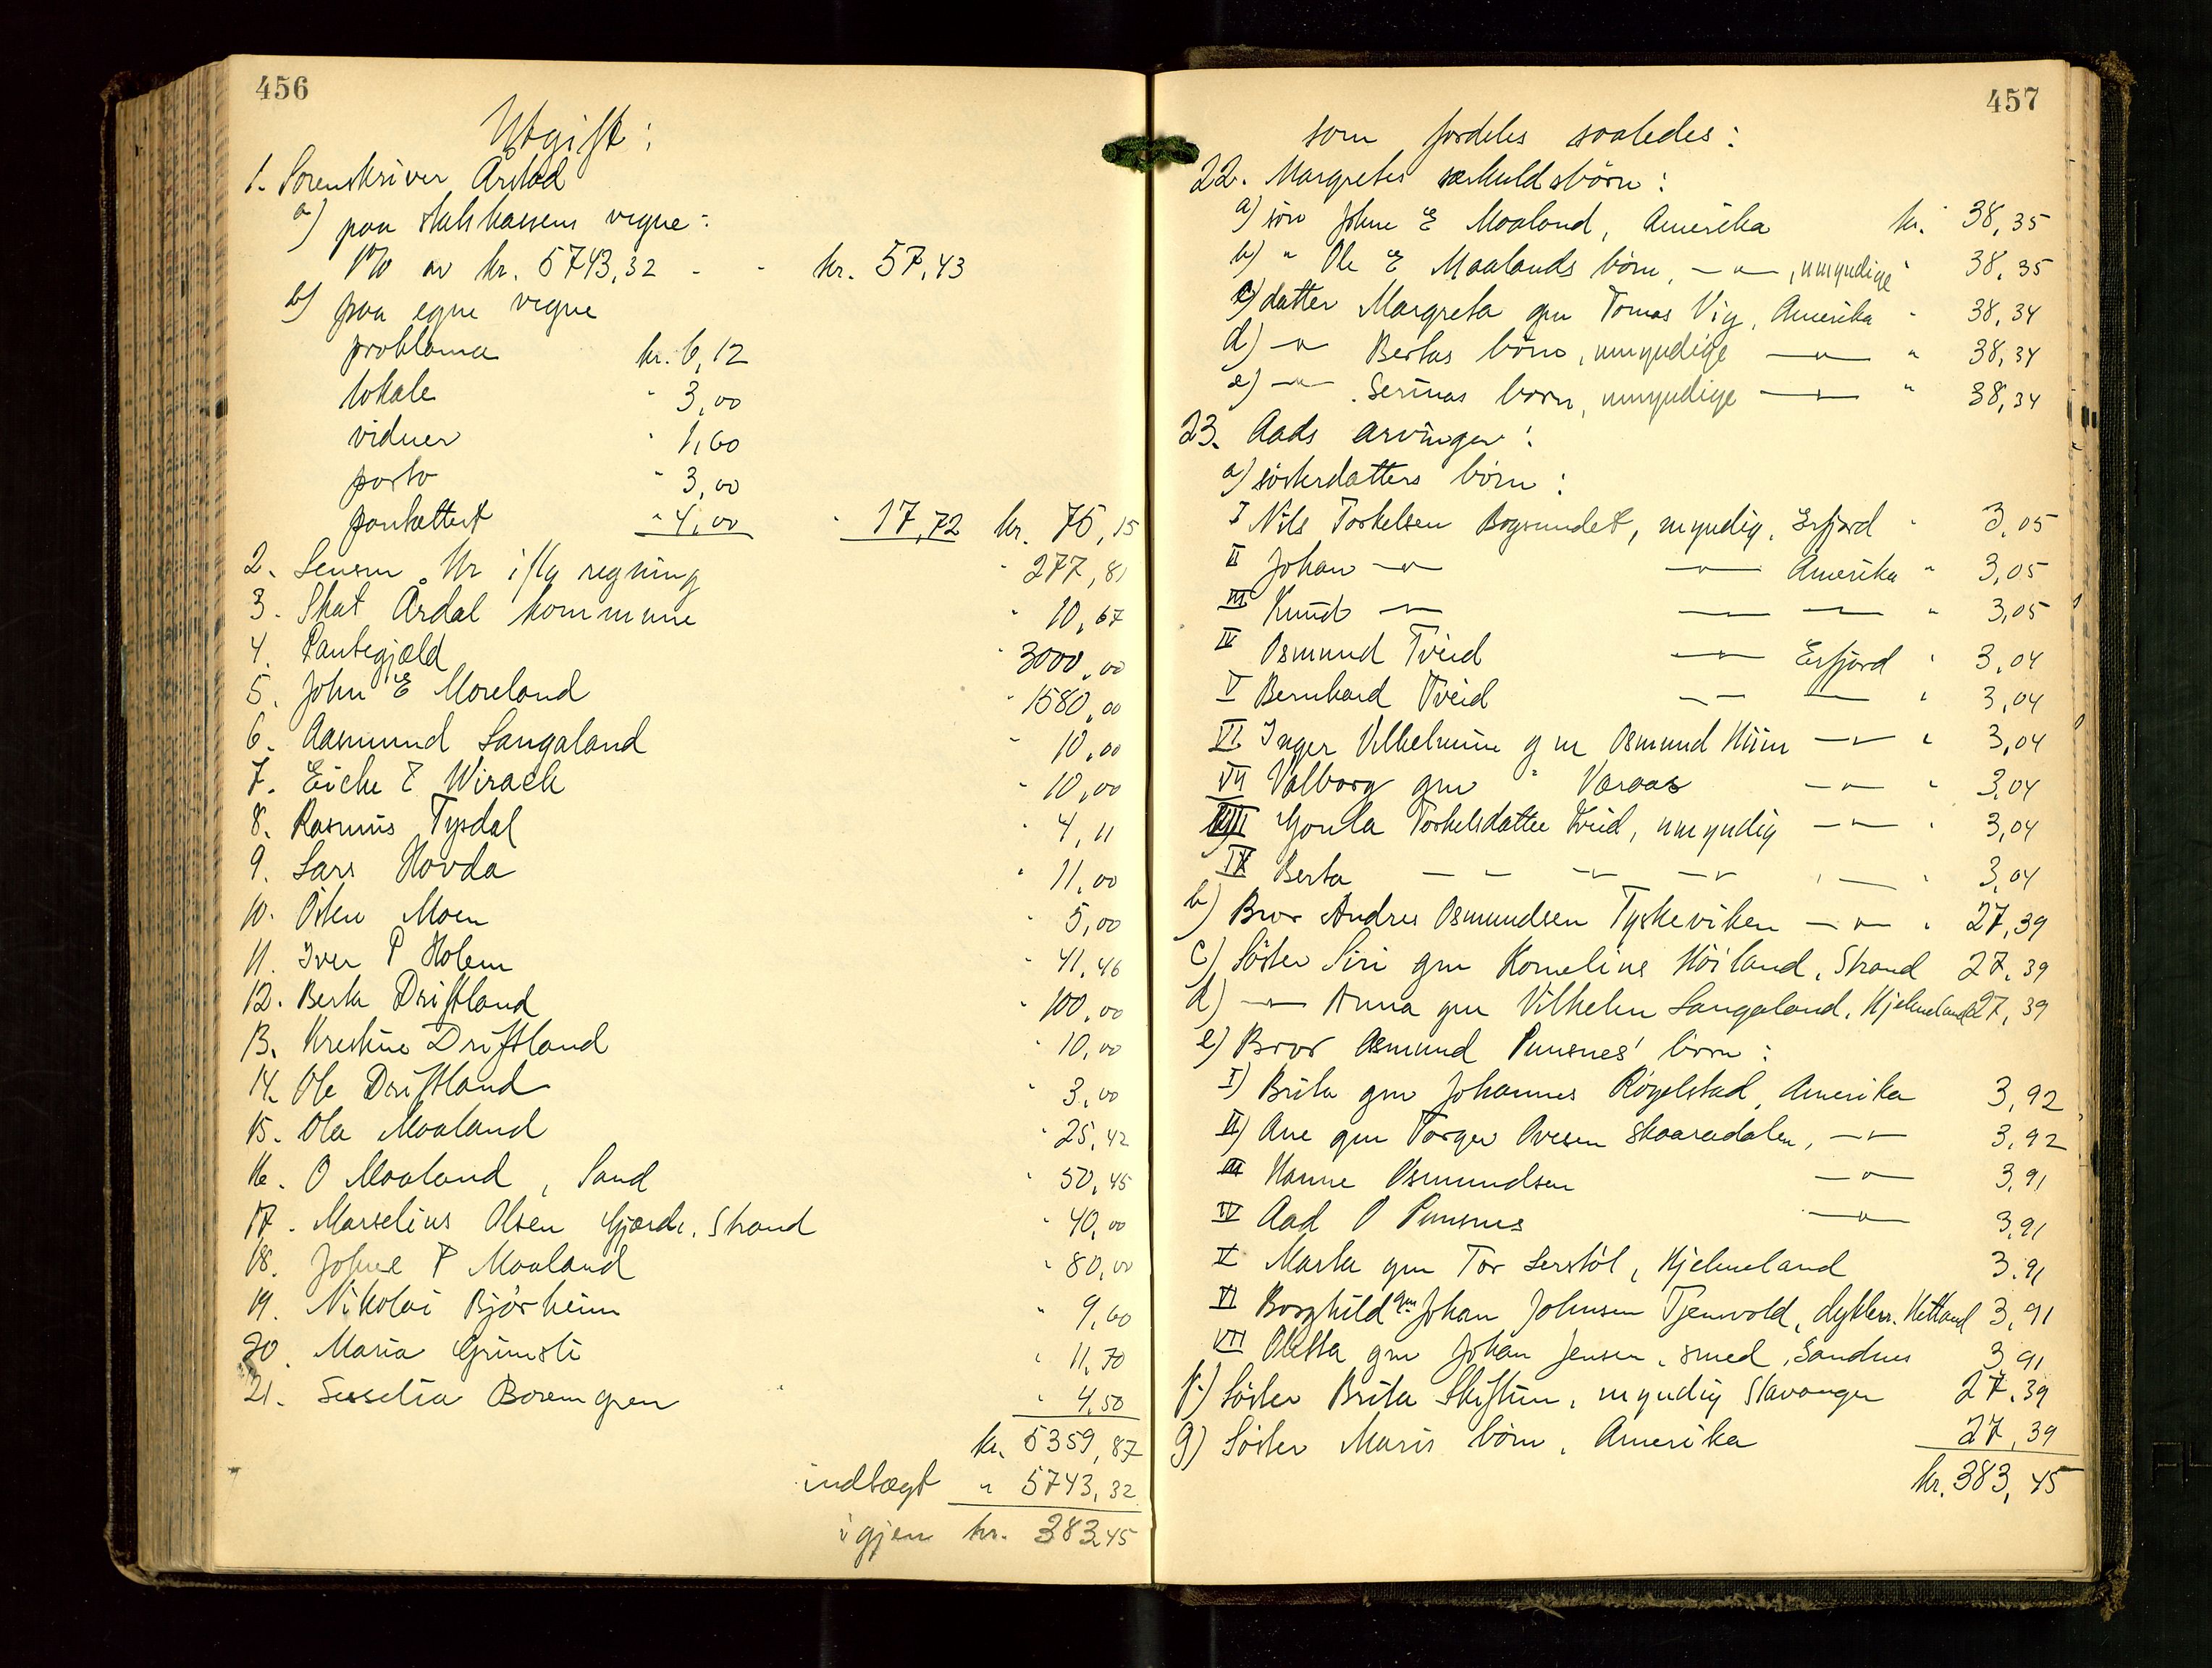 456
Utgift:
1. Sorenskriver Årstad
a) paa statskassens vegne:
1% av kr. 5743,32 - - kr. 57,43
b) paa egne vegne
proklama kr. 6,12
lokale " 3,00
vidner " 1,60
porto " 3,00
panteattest " 4,00 " 17,72 kr. 75,15
2. Lensm. Ur iflg regning " 277,81
3. Skat Årdal kommune " 10,67
4. Pantegjæld " 3000,00
5. John E Moreland " 1580,00
6. Aasmund Langaland " 10,00
7. Eiche & Wirach " 10,00
8. Rasmus Tysdal " 4,11
9. Lars Hovda " 11,00
10. Østen Moen " 5,00
11. Iver P Holem " 41,46
12. Berta Driftland " 100,00
13. Krestine Driftland " 10,00
14. Ole Driftland " 3,00
15. Ola Maaland " 25,42
16. O Maaland, Sand " 50,45
17. Marselius Olsen Gjærde, Strand " 40,00
18. Johne P Maaland " 80,00
19. Nikolai Bjørheim " 9,60
20. Maria Grimsli " 11,70
21. Sesselia Boremgren " 4,50
kr. 5359,87
indtægt " 5743,32
igjen kr. 383,45
457
som fordeles saaledes:
22. Margretes særkuldsbörn:
a) sön Johne E Maaland, Amerika kr. 38,35
b) " Ole E Maalands börn, —"—, umyndige " 38,35
c) datter Margreta gm Tomas Vig, Amerika " 38,34
d) —"— Bertas börn, umyndige —"— " 38,34
e) —"— Serinas börn, umyndige —"— " 38,34
23. Aads arvinger:
a) södterdatters börn:
I Nils Torkelsen Bogsundet, myndig, Erfjord " 3,05
II Johan —"— —"— Amerika " 3,05
III Knud —"— —"— —"— " 3,05
IV Osmund Tveid —"— Erfjord " 3,04
V Bernhard Tveid —"— —"— " 3,04
VI Inger Vilhelmine gm Osmund Hiim —"— " 3,04
VII Valborg gm " Varaas —"— " 3,04
VIII Gonla Torkelsdatter Tveid, umyndig —"— " 3,04
IX Berta —"— —"— —"— —"— " 3,04
b) Bror Andres Osmundsen Tyskeviken —"— " 27,39
c) Söster Siri gm Kornelius Höiland, Strand 27,39
d) —"— Anna gm Vilhelm Langaland, Hjelmeland 27,39
e) Bror Osmund Punsnes' börn:
I) Brita gm Johannes Røgelstad, Amerika 3,92
II) Ane gm Torger Ovesen Skaaradalen, —"— 3,92
III Hanne Osmundsen —"— 3,91
IV Aad O Punsnes —"— 3,91
V Marta gm Tor Lerstöl, Hjelmeland 3,91
VI Borghild gm Johan Johnsen Tjenvold, dykker. Hetland 3,91
VII Oletta gm Johan Jensen, smed, Sandnes 3,91
f) Söster Brita Skiftun, myndig Stavanger 27,39
g) Söster Maris börn, Amerika 27,39
kr. 383,45